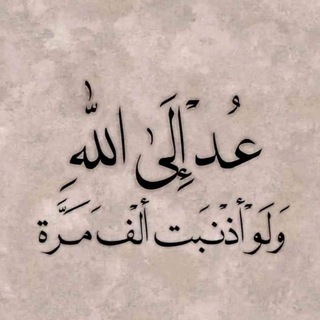 عُد إِلَى اللّٰهِ
وَلَوْ أذْنَبَت ألْف مَرَّة